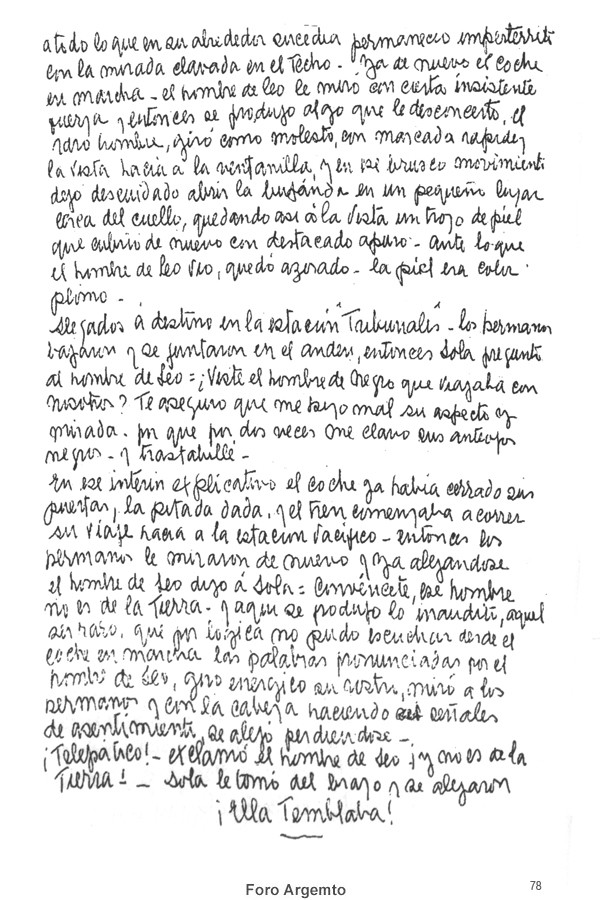 a todo lo que en su alrededor sucedia permanecio imperterrito
con la mirada clavada en el Techo - Ya de nuevo el coche
en marcha - el hombre de Leo le miró con cierta insistente
fuerza y entonces se produjo algo que le desconcerto, el
raro hombre, giró como molesto, con marcada rapidez
la vista hacia a la ventanilla, y en ese brusco movimiento
dejo descuidado abrir la bufánda en un pequeño lugar
cerca del cuello, quedando asi à la vista un trozo de piel
que cubrio de nuevo con destacado apuro - ante lo que
el hombre de Leo vio, quedó azorado - la piel era color
plomo -
Llegados á destino en la estación "Tribunales" - los hermanos
bajaron y se juntaron en el anden, entonces Sola pregunto
al hombre de Leo = ¿Viste el hombre de Negro que viajaba con
nosotros? Te aseguro que me hizo mal su aspecto y
mirada - por que por dos veces me clavo sus anteojos
negros - y trastabillé -
En ese interin explicativo el coche ya había cerrado sus
puertas, la pitada dada, y el tren comenzaba a correr
su viaje hacia a la estacion Pacifico - entonces los
hermanos le miraron de nuevo y Ya alejandose
el hombre de Leo dijo á Sola = Convéncete, ese hombre
no es de la Tierra - Y aqui se produjo lo inaudito, aquel
ser raro, que por lógica no pudo escuchar desde el
coche en marcha las palabras pronunciadas por el
hombre de Leo, giro energico su rostro, miró a los
hermanos y con la cabeza haciendo señales
de asentimiento, se alejó perdiendose -
¡Telepático! - exclamó el hombre de Leo ¡y no es de la
Tierra! - Sola le tomó del brazo y se alejaron
¡Ella Temblaba!
Foro Argemto
78